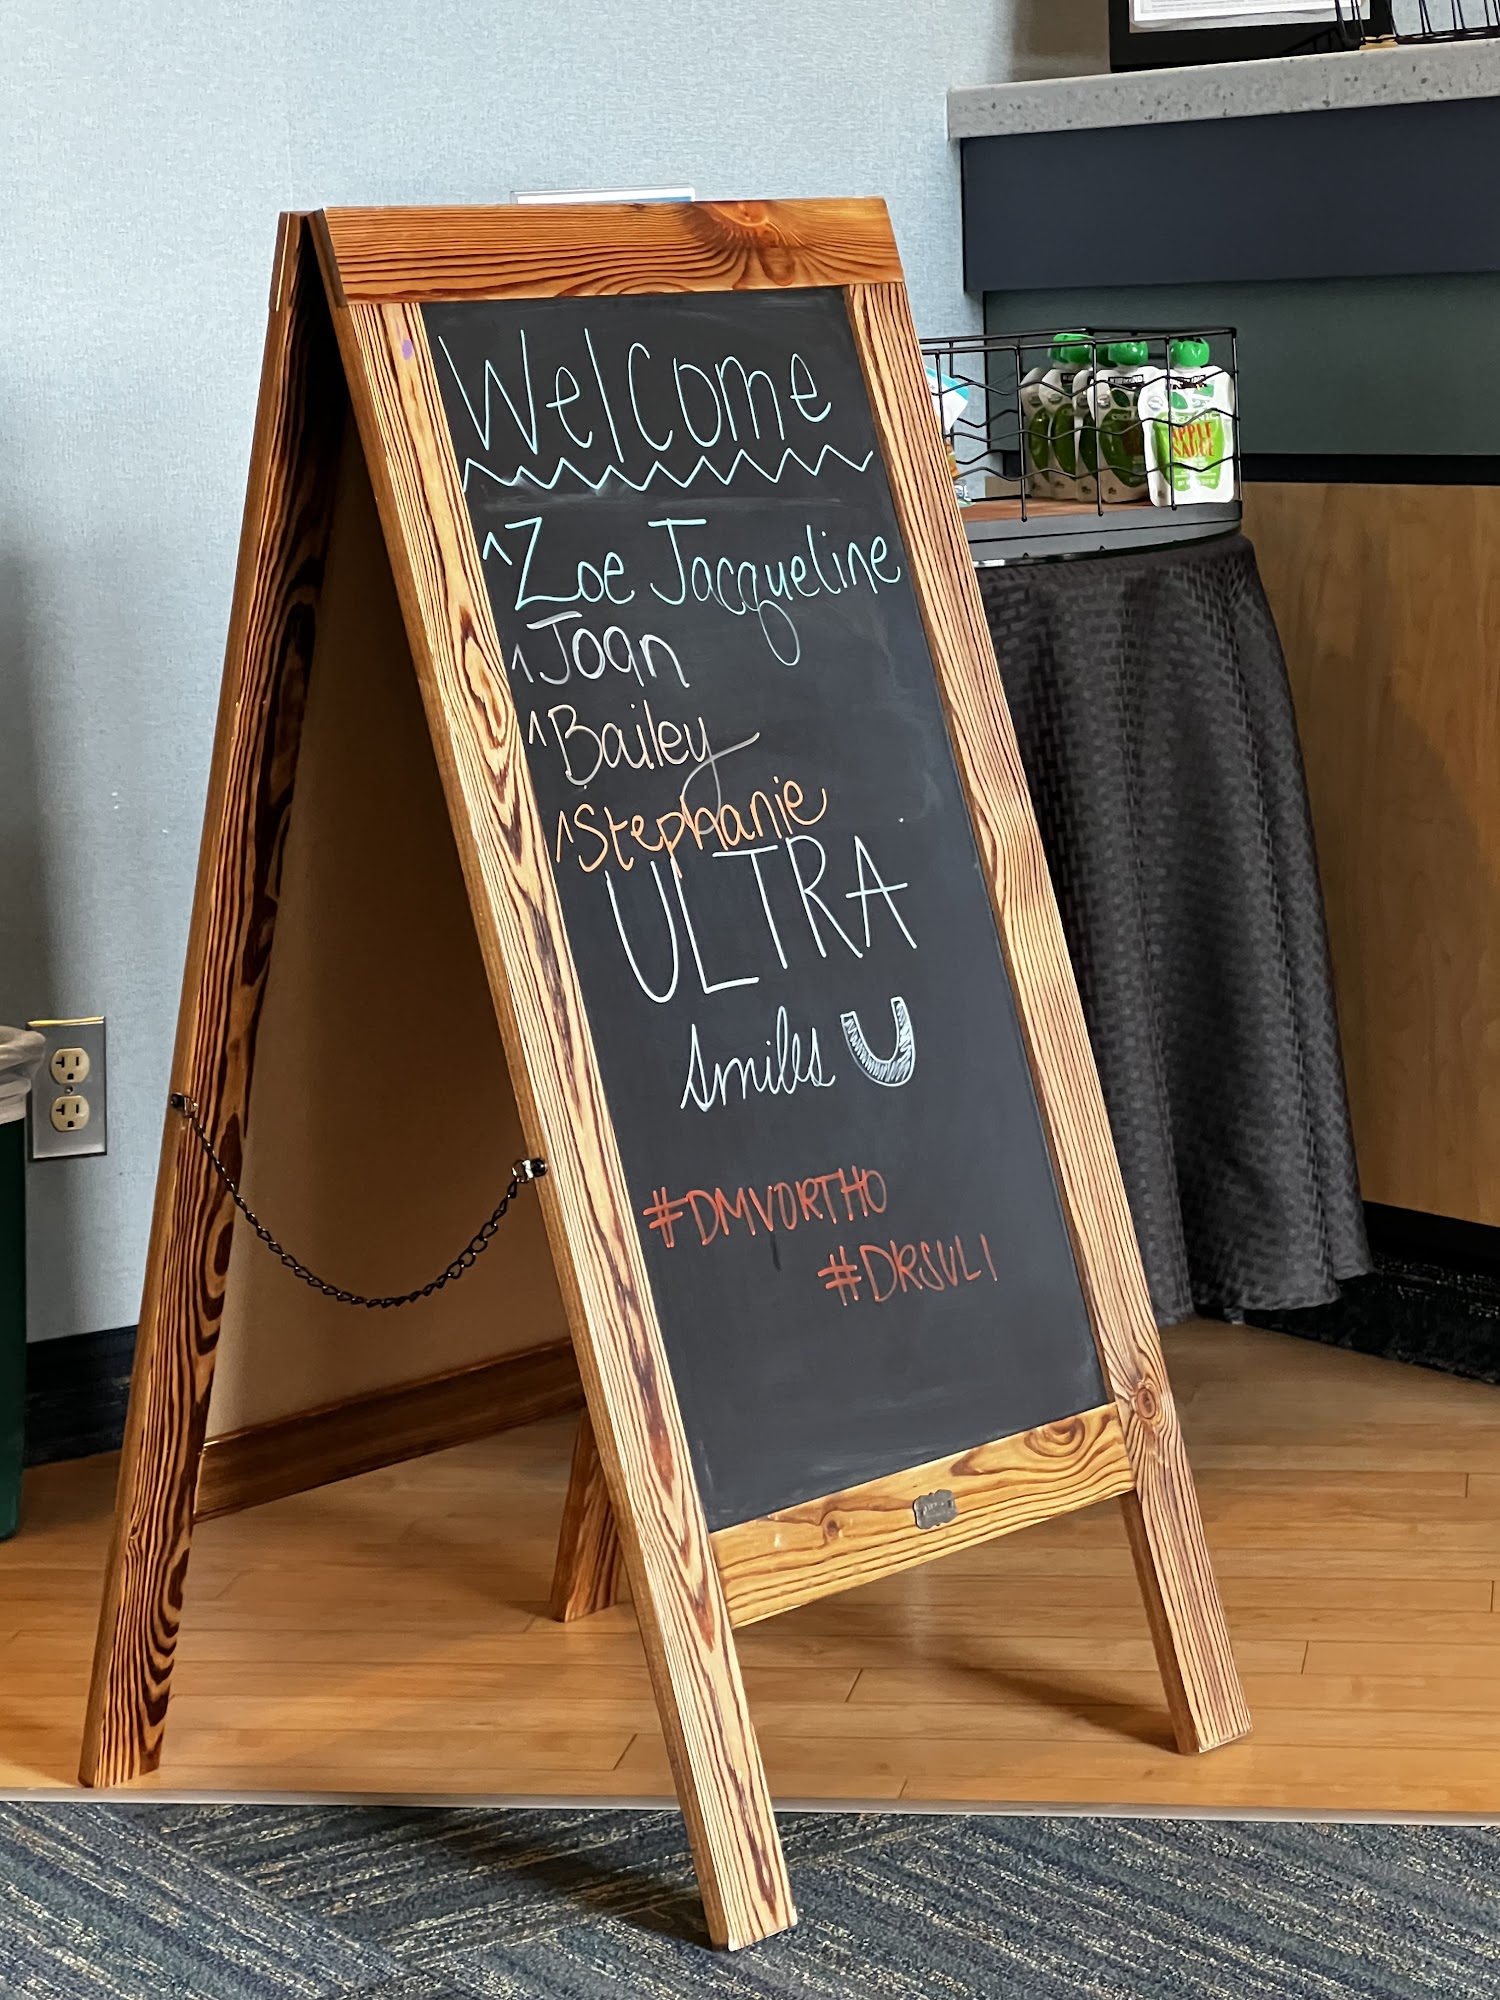 Welcome
^Zoe Jacqueline
^Joan
^Bailey
^Stephanie
ULTRA
Smiles
#DMVORTHO
#DRSULI
APPLE
SAUCE